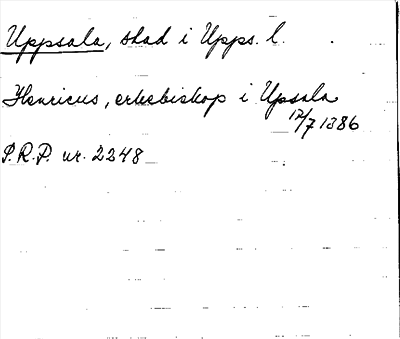 Uppsala, stad i Upps. l.
Henricus, erkebiskop i Upsala
12/7 1386
P.R.P. nr. 2248